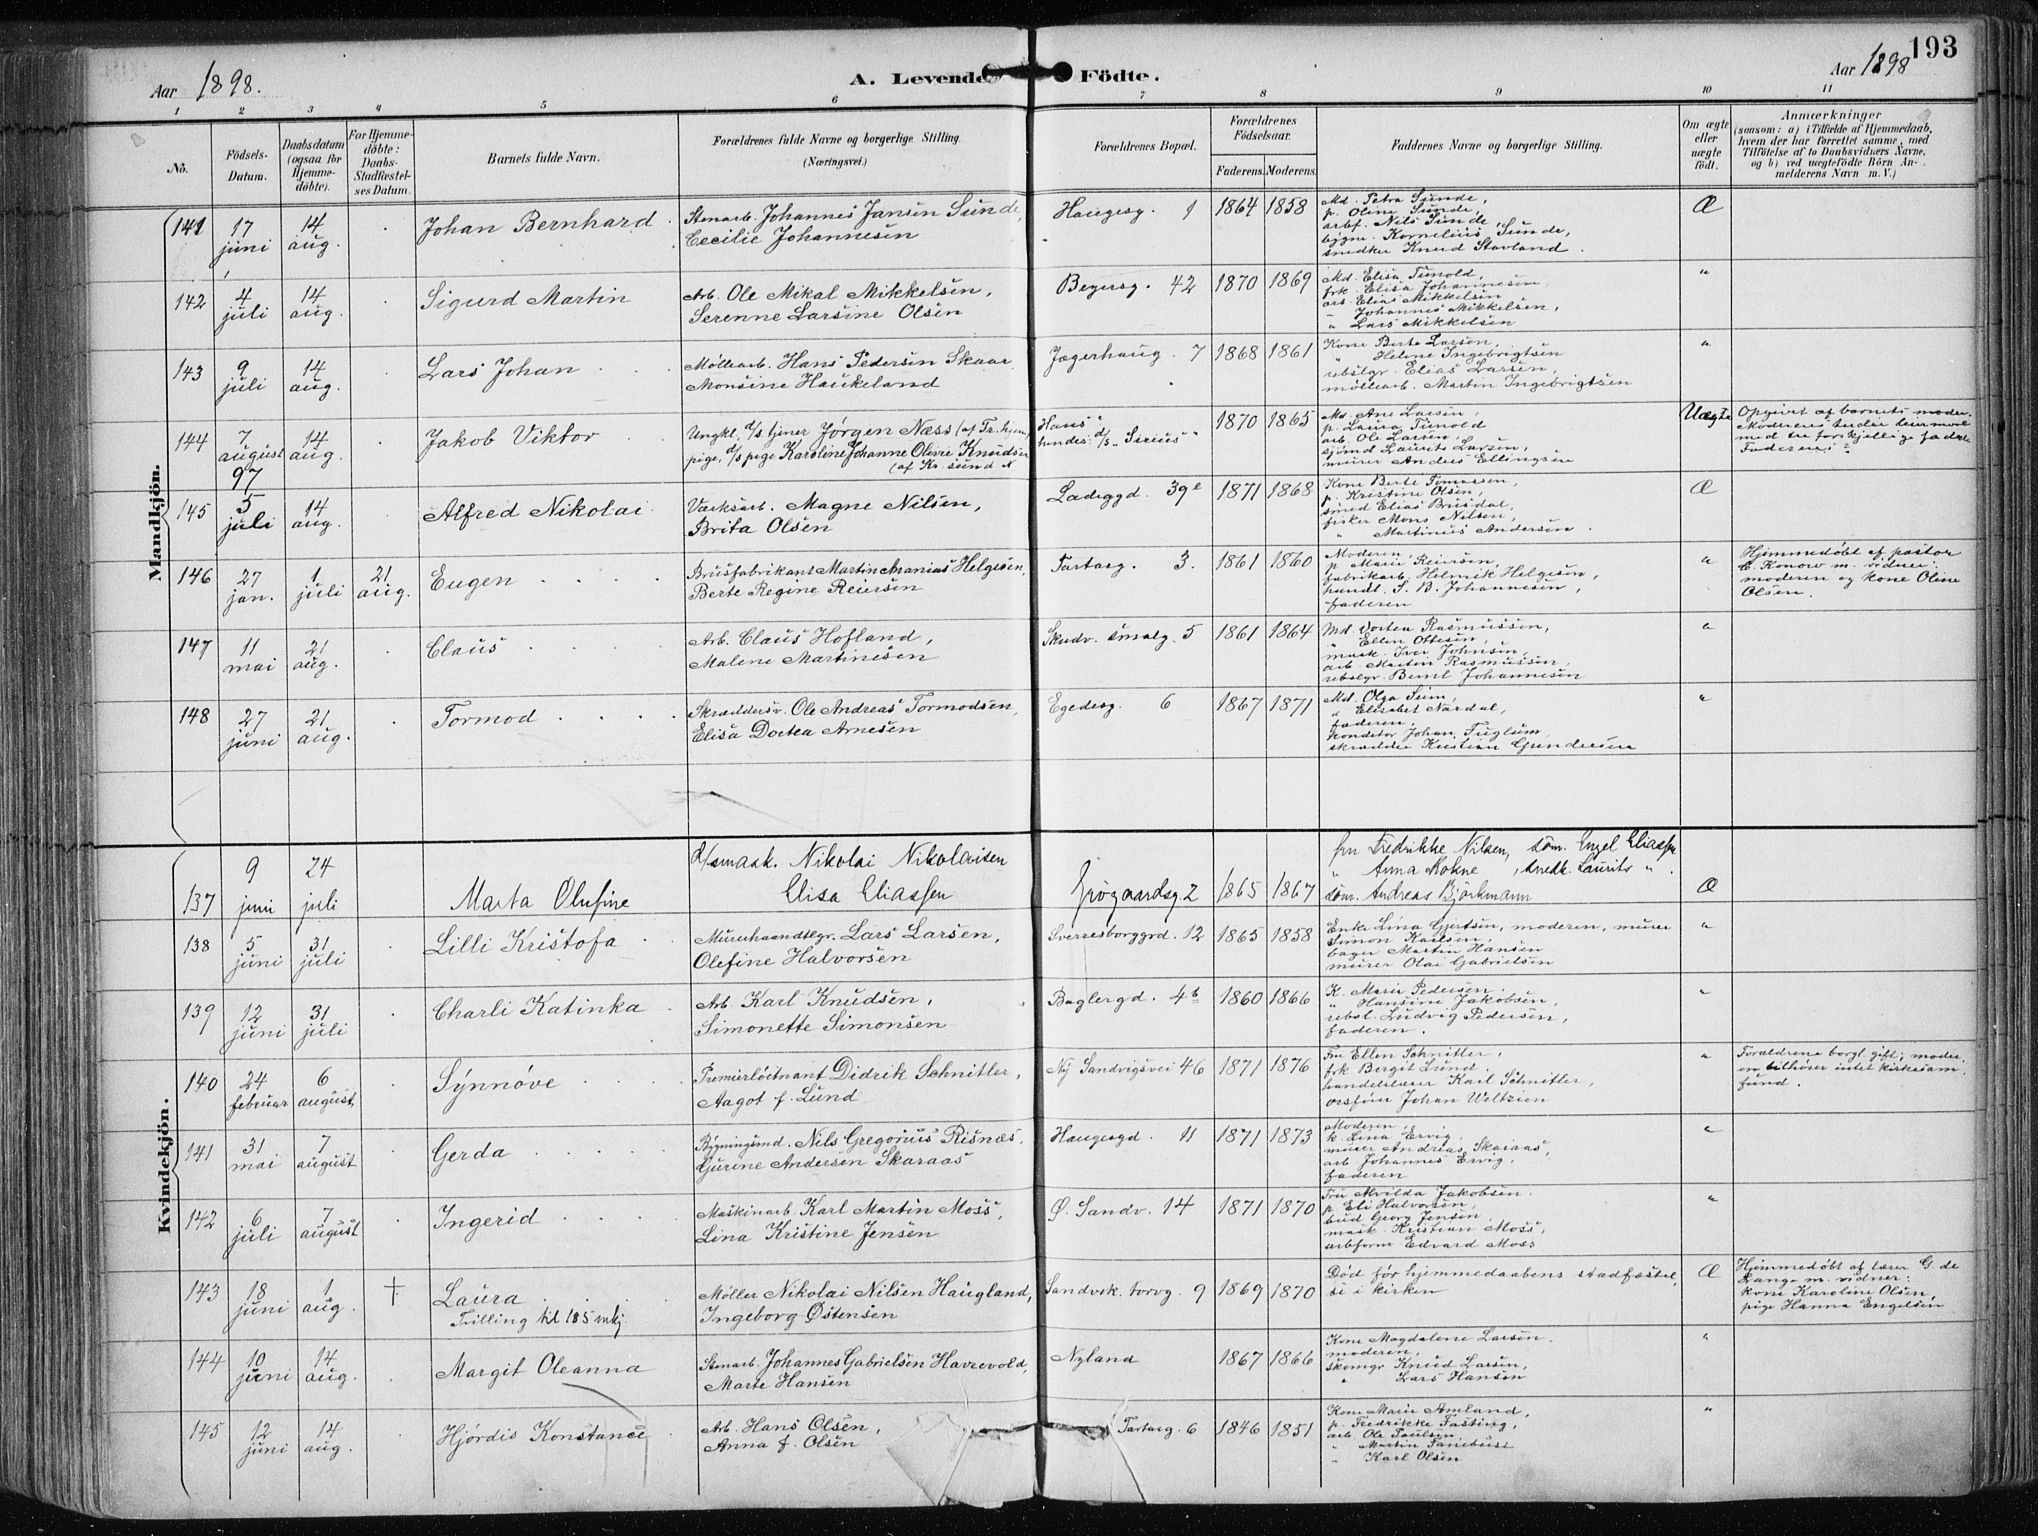 193
Aar 1898.
A. Levende Födte.
Aar 1898
1 2 3 4 5 6 7 8 9 10 11
No.
Födsels-Datum.
Daabsdatum (ogsaa for Hjemme-döbte).
For Hjemme-döbte: Daabs-Stadfæstel-ses Datum.
Barnets fulde Navn.
Forældrenes fulde Navne og borgerlige Stilling. (Næringsvei.)
Forældrenes Bopæl.
Forældrenes Födselsaar.
Faderens. Moderens.
Faddernes Navne og borgerlige Stilling.
Om ægte eller uægte födt.
Anmærkninger
(saasom: a) i Tilfælde af Hjemmedaab, hvem der har forrettet samme, med Tilföielse af to Daabsvidners Navne, og b) ved uægtefödte Börn An-melderens Navn m. V.)
Mandkjön.
141 17 juni 14 aug. Johan Bernhard
Stenarb. Johannes Jansen Sunde,
Cecilie Johannesen
Haugesg. 9 1864 1858
Md. Petra Sunde,
p. Oline Sunde,
arbf. Nils Sunde,
bygm. Kornelius Sunde,
snedker Knud Stavland.
Æ
142 4 juli 14 aug. Sigurd Martin
Arb. Ole Mikal Mikkelsen,
Serenne Larsine Olsen
Beyersg. 42 1870 1869
Md. Elisa Tunold,
frk. Elisa Johannesen
arb. Elias Mikkelsen
" Johannes Mikkelsen,
" Lars Mikkelsen
"
143 9 juli 14 aug. Lars Johan
Møllearb. Hans Pedersen Skaar
Monsine Haukeland
Jægerhaug. 7 1868 1861
Kone Berte Larsen,
" Helene Ingebrigtsen
rebslgr. Elias Larsen,
møllearb. Martin Ingebrigtsen
"
144 7 august 97 14 aug. Jakob Viktor
Ungkl. d/s tjener Jørgen Næss (af Tr.hjem)
pige, d/s pige Karoline Johanne Olivie Knudsen
(af Kr.sund N
d/s "Sirius" 1870 1865
Md. Ane Larsen,
p. Laura Tunold
arb. Ole Larsen
sjømd Laurits Larsen,
murer Anders Ellingsen
Uægte
Opgivet af barnets moder.
Moderens tredie leiermaal
med tre forskjellige fædre
145 5 juli 14 aug. Alfred Nikolai
Værksarb. Magne Nilsen,
Brita Olsen
Ladeggd. 39e 1871 1868
Kone Berte Tomassen,
p. Kristine Olsen,
smed Elias Brusdal,
fisker Mons Nilsen,
" Martinus Andersen.
Æ
146 27 jan. 1 juli 21 aug. Eugen
Brusfabrikant Martin Ananias Helgesen,
Berte Regine Reiersen
Tartarg. 3. 1861 1860
Moderen,
p Marie Reiersen,
fabrikarb. Helmik Helgesen,
handl. S. B. Johannesen,
faderen
"
Hjemmedøbt af pastor
C. Konow m. vidner:
moderen og kone Oline
Olsen.
147 11 mai 21 aug. Claus
Arb. Claus Hofland,
Malene Martinesen
Skudv. smalg. 5 1861 1864
Md. Dortea Rasmussen,
" Ellen Ottesen,
mask. Iver Johnsen,
arb. Martin Rasmussen,
rebslgr. Bernt Johannesen
"
148 27 juni 21 aug. Tormod
Skræddersv. Ole Andreas Tormodsen,
Elisa Dortea Arnesen
Egedesg. 6 1867 1871
Md. Olga Seim,
" Elisabet Nardal,
faderen,
konditor Johan Fuglum,
skrædder Kristian Gundersen
"
Kvindekjön.
137 9 juni 24 juli Marta Olufine
D/smask. Nikolai Nikolaisen
Elisa Eliassen
Grøgaardsg. 2 1865 1867
fru Fredrikke Nilsen, søm. Engel Eliassen
" Anna Mohne, snedk. Laurits ".
søm. Andreas Björkmann
Æ
138 5 juni 31 juli Lilli Kristofa
Murerhaandlgr. Lars Larsen,
Olefine Halvorsen
Sverresborggrd. 12 1865 1858
Enke Lina Gjertsen, moderen, murer
Simon Karlsen,
bager Martin Hansen
murer Olai Gabrielsen
"
139 12 juni 31 juli Charli Katinka
Arb. Karl Knudsen,
Simonette Simonsen
Baglergd. 4b 1860 1866
K. Marie Pedersen,
" Hansine Jakobsen,
rebsl. Ludvig Pedersen,
faderen.
"
140 24 februar 6 august Synnøve
Premierløitnant Didrik Schnitler,
Aagot f. Lund
Ny Sandvigsvei 46 1871 1876
Fru Ellen Schnitler,
frk Bergit Lund,
handelslærer Karl Schnitler,
Johan Weltzien
"
Forældrene borgl. gift; moder-
en tilhører intet kirkesam-
fund.
141 31 mai 7 august Gerda
Bygningsmd. Nils Gregorius Risnæs,
Gurine Andersen Skaraas
Haugesgd. 11 1871 1873
Moderen,
k. Lina Ervig,
murer Andreas Skaraas,
arb Johannes Ervig,
faderen
"
142 6 juli 7 august Ingerid
Maskinarb. Karl Martin Moss,
Lina Kristine Jensen
Ø. Sandv. 14 1871 1870
Fru Alvilda Jakobsen,
p Eli Halvorsen,
bud Georg Jensen
mask. Kristian Moss,
arbform Edvard Moss
"
143 18 juni 1 aug. † Laura
Trilling til 135 mkj.
Møller Nikolai Nilsen Haugland,
Ingeborg Østensen
Sandvik. torvg. 9 1869 1870
Død før hjemmedaabens stadfæstel-
se i kirken
Æ
Hjemmedøbt af lærer G de
Lange m. vidner:
kone Karoline Olsen,
pige Hanna Engelsen
144 10 juni 14 aug. Margit Oleanna
Stenarb. Johannes Gabrielsen Havrevold,
Marte Hansen
Nyland 1867 1866
Kone Magdalene Larsen,
moderen,
skomgr Knud Larsen,
" Lars Hansen
"
145 12 juni 14 aug. Hjørdis Konstance
Arb. Hans Olsen,
Anna f. Olsen
Tartarg. 6 1846 1851
Kone Marie Amland,
p. Fredrikke Fasting,
arb Ole Paulsen,
" Martin Tanebust
" Karl Olsen
"